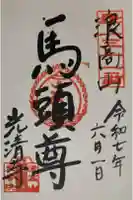 浪高山
馬頭尊
光清寺
令和七年
六月一日